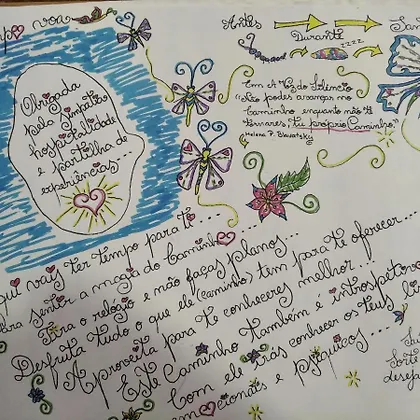 voa
Antes
Durante
zzzz
Obrigada
pela simpatia
hospitalidade
e partilha de
experiências...
Em A Voz do Silêncio
"Não podes avançar no
Caminho enquanto não te
tornares tu próprio Caminho."
Helena P. Blavatsky
aqui vais ter tempo para ti...
sentir a magia do Caminho...
Tira o relógio e não faças planos...
Desfruta tudo o que ele (caminho) tem para te oferecer...
Aproveita para te conheceres melhor...
Este Caminho também é introspetivo
Com ele irás conhecer os teus
emocionais e psíquicos...